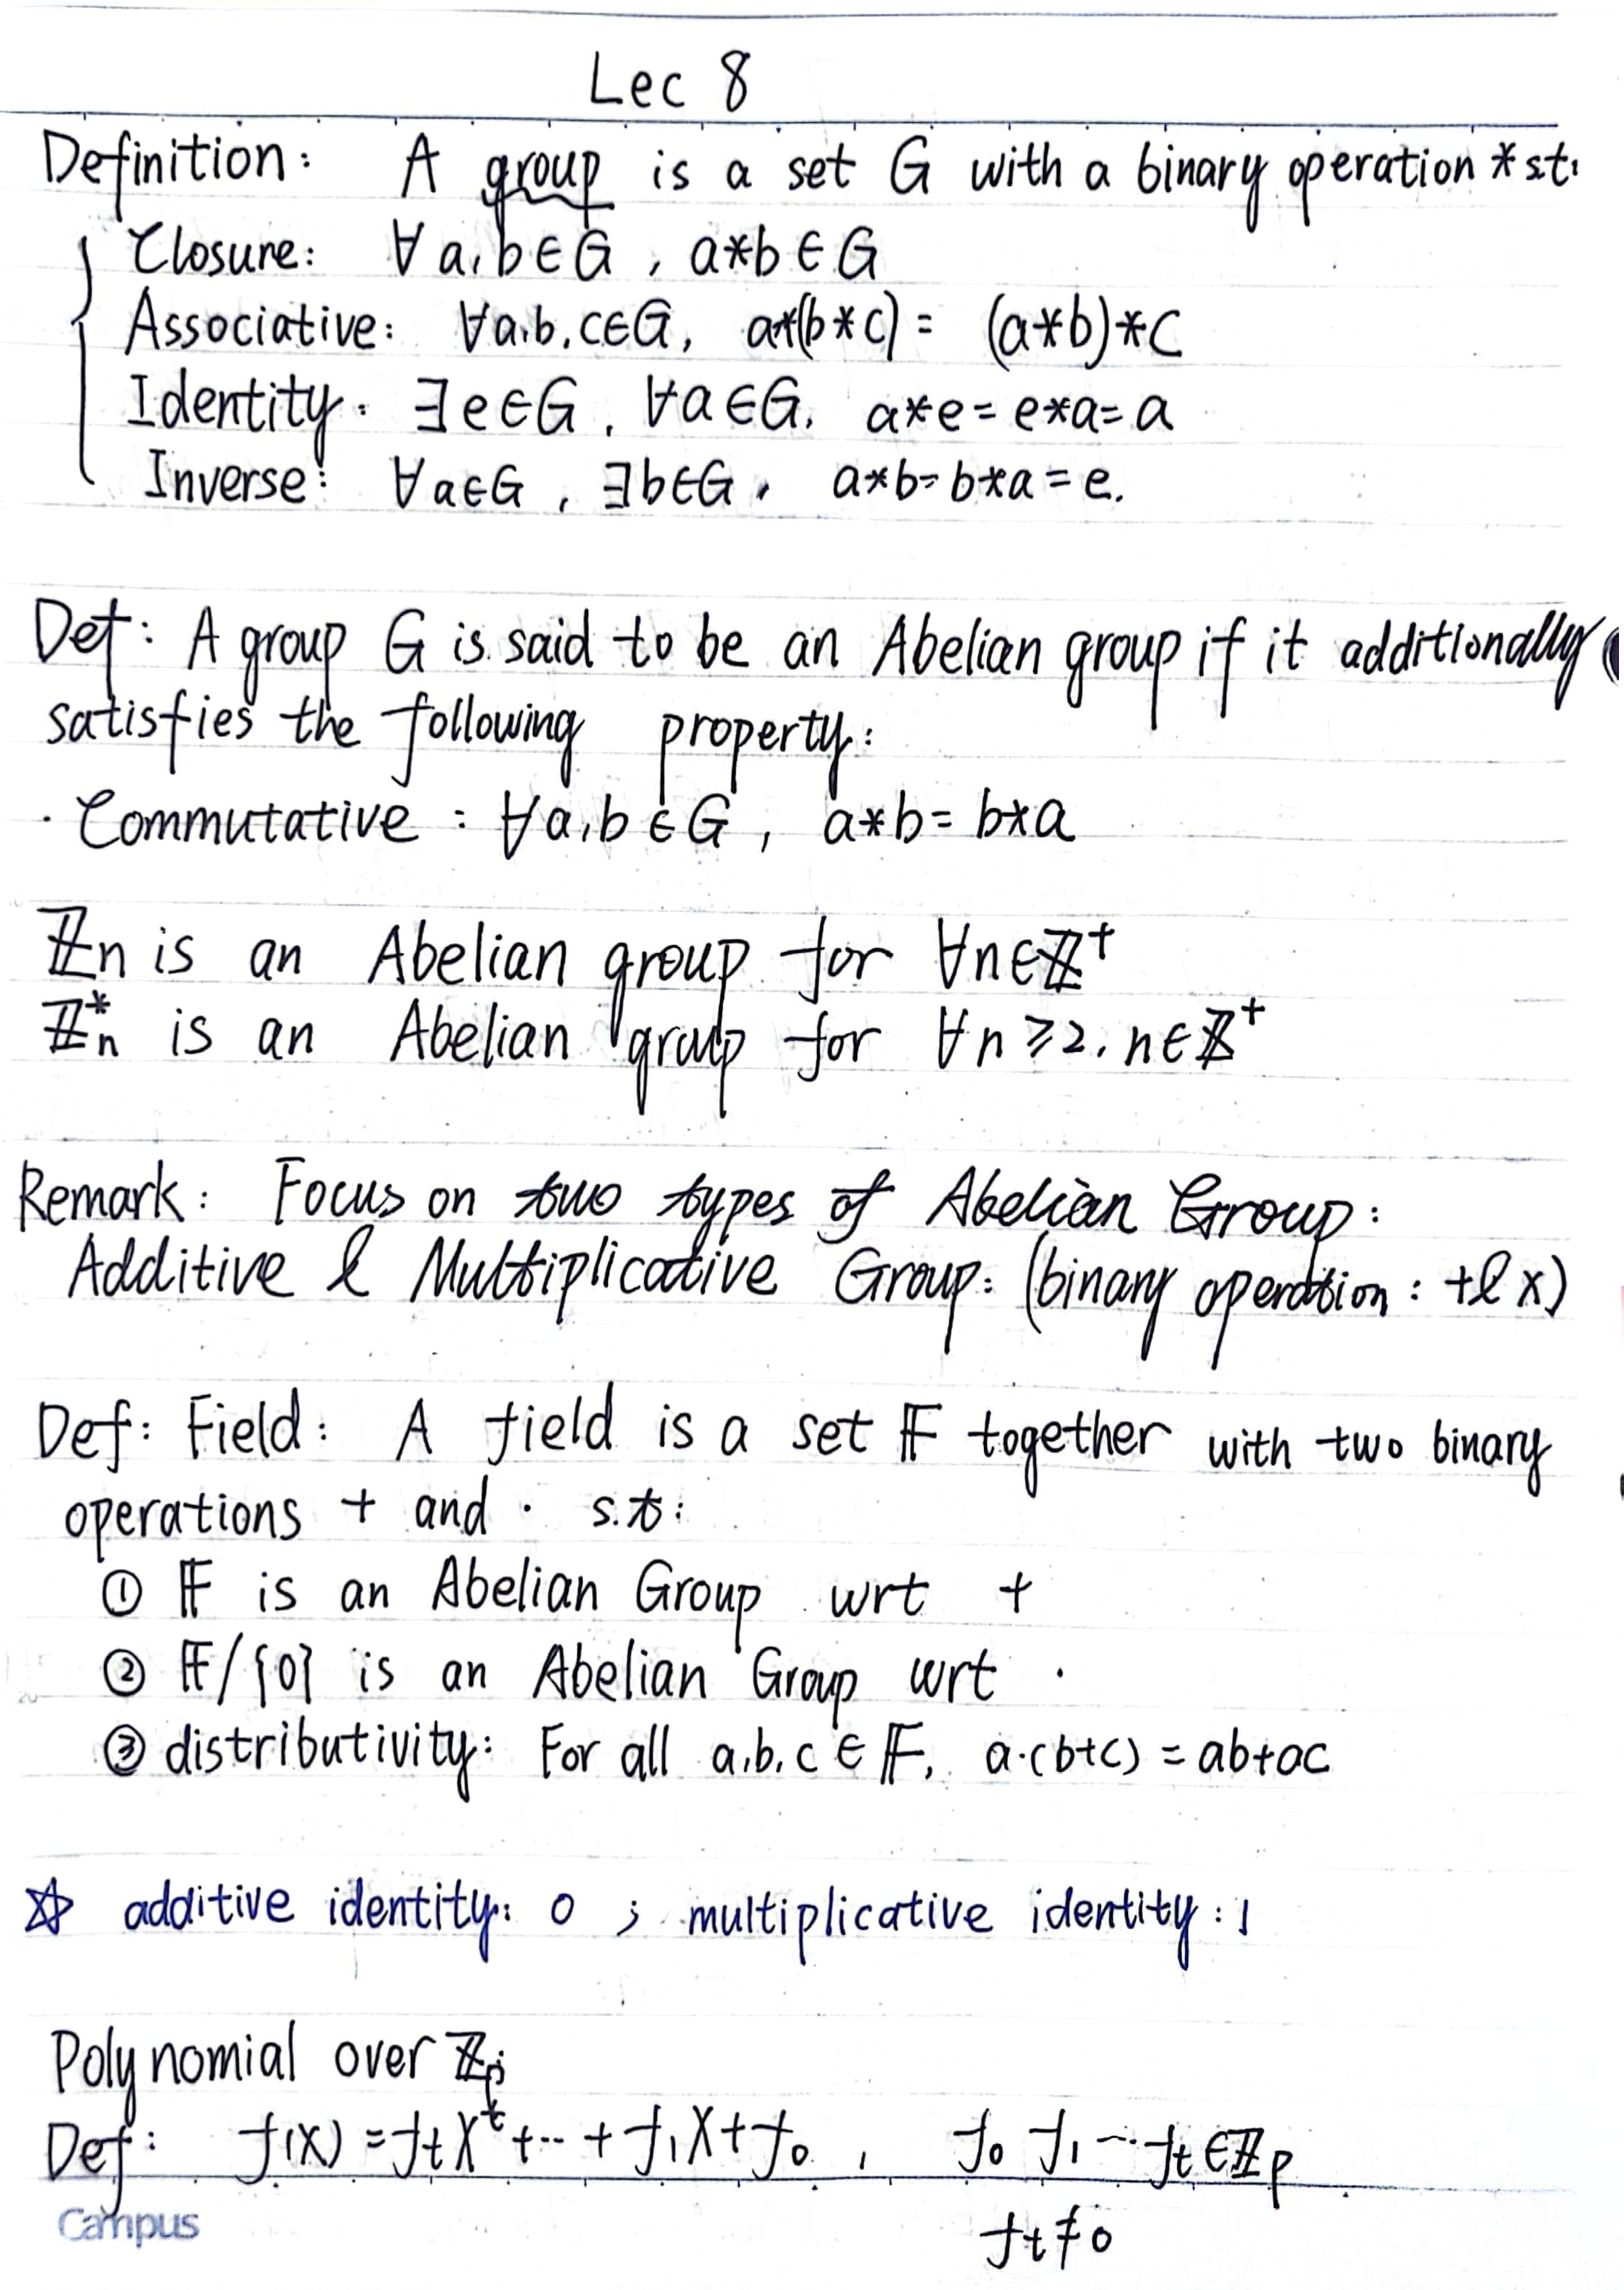 Lec 8
Definition: A group is a set G with a binary operation * st.
Closure: ∀a,b∈G, a*b∈G
Associative: ∀a,b,c∈G, a*(b*c) = (a*b)*c
Identity: ∃e∈G, ∀a∈G, a*e=e*a=a
Inverse: ∀a∈G, ∃b∈G, a*b=b*a=e.
Def: A group G is said to be an Abelian group if it additionally
satisfies the following property:
· Commutative: ∀a,b∈G, a*b=b*a
ℤn is an Abelian group for ∀n∈ℤ⁺
ℤ*n is an Abelian group for ∀n≥2, n∈ℤ⁺
Remark: Focus on two types of Abelian Group:
Additive & Multiplicative Group: (binary operation: +&×)
Def: Field: A field is a set 𝔽 together with two binary
operations + and · s.t:
① 𝔽 is an Abelian Group wrt +
② 𝔽/{0} is an Abelian Group wrt ·
③ distributivity: For all a,b,c∈𝔽, a·(b+c)=ab+ac
☆ additive identity: 0; multiplicative identity: 1
Polynomial over ℤp:
Def: f(x)=f_t X^t+…+f₁X+f₀, f₀ f₁ … f_t∈ℤp
f_t≠0
Campus